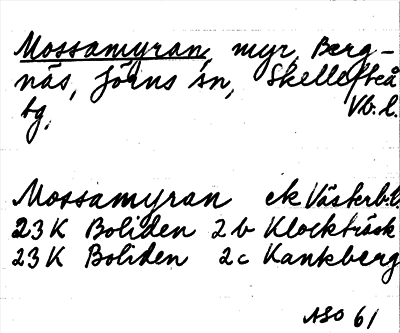 Mossamyran, myr, Berg-
näs, Jörns sn, Skellefteå
tg, Vb. l.
Mossamyran ek Västerb.l.
23 K Boliden 2 b Klockträsk
23 K Boliden 2 c Kankberg
ASO 61